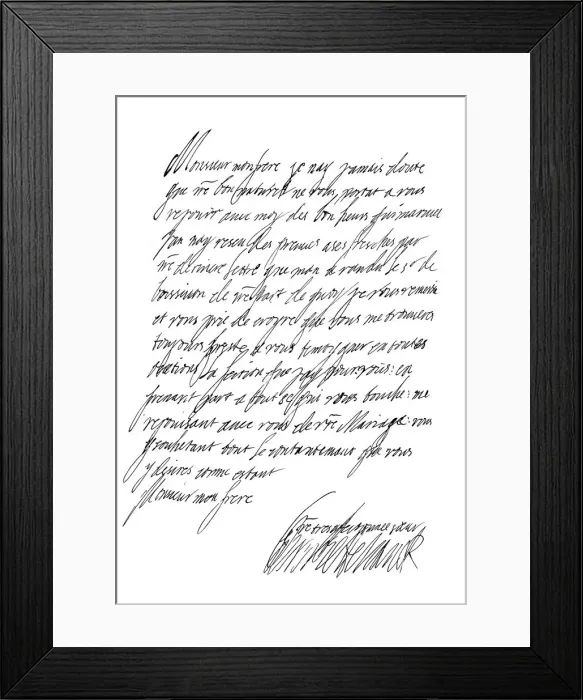 Monsieur mon frere je nay jamais doute
que vre bon naturel ne vous portat a vous
rejouir avec moy des bon heurs qui marivent
jan nay reseu des preuves ases fresches par
vre derniere lettre que man a randu le sr de
de vre part de quoy je vous remersie
et vous prie de croyre que vous me trouverés
toujours preste a vous temoygner en toutes
que jay pour vous: en
prenant part a tout se qui vous touche: me
rejouisant avec vous de vre Mariage: vous
y souhetant tout le contantemant que vous
y desires comme estant
Monsieur mon frere
vre tres afectionnée seur